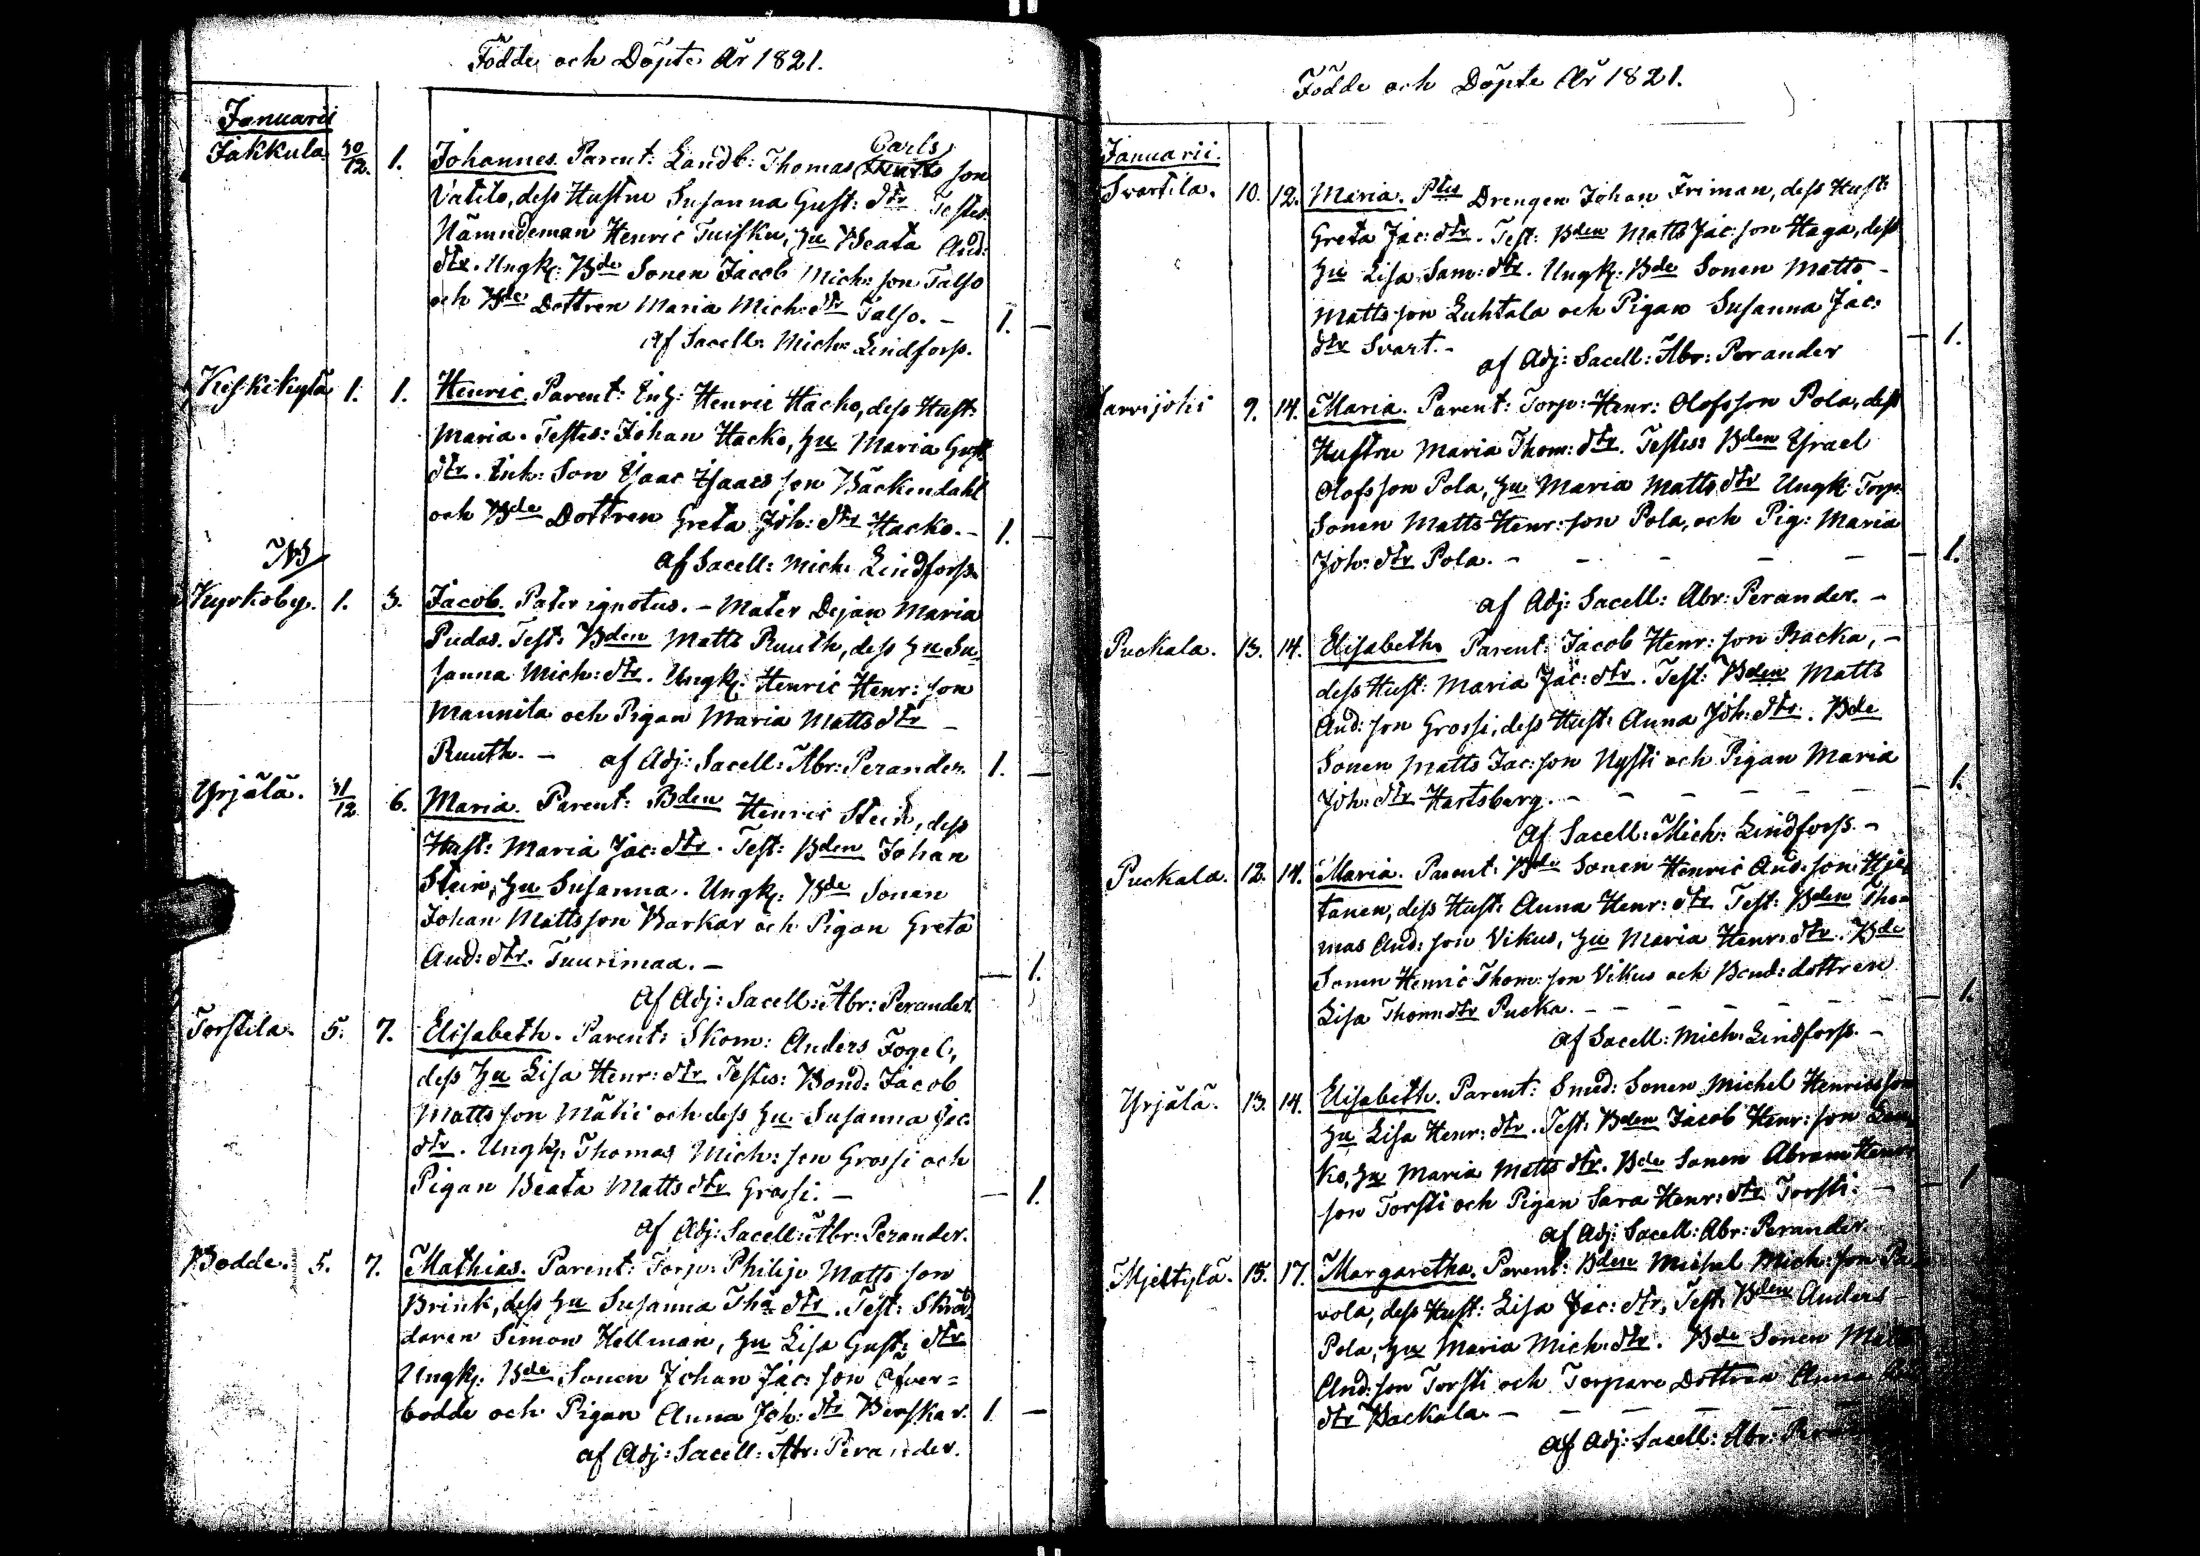 Födde och Döpte År 1821.
Januarii
Jakkula 30/12. 1. Johannes. Parent: Landb: Thomas Carls son
Vatilo, dess Hustru Susanna Gust: dtr Testes:
Nämndeman Henric Tuisku, Hu Beata And:
dtr. Ungk: Bde Sonen Jacob Mich: son Talso
och Bde Dottren Maria Mich: dtr Talso. – 1. –
af Sacell: Mich: Lindforss.
Keskikylä 1. 1. Henric. Parent: Enh: Henric Hacko, dess Hust:
Maria. Testes: Johan Hacko, Hu Maria Gust:
dtr. Enh: Son Isaac Isaacs son Backendahl
och Bde Dottren Greta Joh: dtr Hacko. – 1. –
af Sacell: Mich: Lindforss.
Kyrkoby. 1. 3. Jacob. Pater ignotus. – Mater Dejan Maria
Pudas. Test: Bden Matts Ruuth, dess Hu Su-
sanna Mich: dtr. Ungk: Henric Henr: son
Mannila och Pigan Maria Matts dtr –
Ruuth. – af Adj: Sacell: Abr: Perander. 1. –
Yrjälä. 31/12 6. Maria. Parent: Bden Henric Stein, dess
Hust: Maria Jac: dtr. Test: Bden Johan
Stein, Hu Susanna. Ungk: Bde Sonen
Johan Mattsson Barkar och Pigan Greta
And: dtr. Tuurimaa. – – 1.
af Adj: Sacell: Abr: Perander.
Torstila. 5. 7. Elisabeth. Parent: Skom: Anders Fogel,
dess Hu Lisa Henr: dtr Testes: Bond: Jacob
Matts son Mäki och dess Hu Susanna Jac:
dtr. Ungk: Thomas Mich: son Grossi och
Pigan Beata Matts dtr Grossi. – – 1.
af Adj: Sacell: Abr: Perander.
Bodde. 5. 7. Mathias. Parent: Torp: Philip Matts son
Brink, dess Hu Susanna Tho: dtr. Test: Skräd-
daren Simon Hellman, Hu Lisa Gust: dtr
Ungk: Bde Sonen Johan Jac: son Öfver=
bodde och Pigan Anna Joh: dtr Berskar. 1. –
af Adj: Sacell: Abr: Perander.
Födde och Döpte År 1821.
Januarii.
Svartila. 10. 12. Maria. Ptes Drengen Johan Friman, dess Hust:
Greta Jac: dtr. Test: Bden Matts Jac: son Haga, dess
Hu Lisa Sam: dtr. Ungk: Bde Sonen Matts –
Matts son Luhtala och Pigan Susanna Jac:
dtr Svart. – – 1.
af Adj: Sacell: Abr: Perander
9. 14. Maria. Parent: Torp: Henr: Olofsson Pola, dess
Hustru Maria Thom: dtr. Testes: Bden Israel
Olofsson Pola, Hu Maria Matts dtr Ungk: Torp:
Sonen Matts Henr: son Pola, och Pig: Maria
Joh: dtr Pola. – – – – – – 1.
af Adj: Sacell: Abr: Perander. –
Puckala. 13. 14. Elisabeth. Parent: Jacob Henr: son Backa, –
dess Hust: Maria Jac: dtr. Test: Bden Matts
And: son Grossi, dess Hust: Anna Joh: dtr. Bde
Sonen Matts Jac: son Nysti och Pigan Maria
Joh: dtr Hartsberg. – – – – – – 1.
af Sacell: Mich: Lindforss. –
Puckala. 12. 14. Maria. Parent: Bde Sonen Henric And: son
tanen, dess Hust: Anna Henr: dtr Test: Bden Tho-
mas And: son Vikus, Hu Maria Henr: dtr. Bde
Sonen Henric Thom: son Vikus och Bond: dottren
Lisa Thom: dtr Pucka. – – – – – – 1.
af Sacell: Mich: Lindforss. –
Yrjälä. 13. 14. Elisabeth. Parent: Smed: Sonen Michel Henricsson
Hu Lisa Henr: dtr. Test: Bden Jacob Henr: son
ko, Hu Maria Matts dtr. Bde Sonen Abram Henr:
son Torsti och Pigan Sara Henr: dtr Torsti. – – 1
af Adj: Sacell: Abr: Perander
Mjeltylä. 15. 17. Margaretha. Parent: Bden Michel Mich: son
vola, dess Hust: Lisa Jac: dtr, Test: Bden Anders –
Pola, Hu Maria Mich: dtr. Bde Sonen Matts
And: son Torsti och Torpare Dottren Anna
dtr Backala. – – – – –
af Adj: Sacell: Abr: